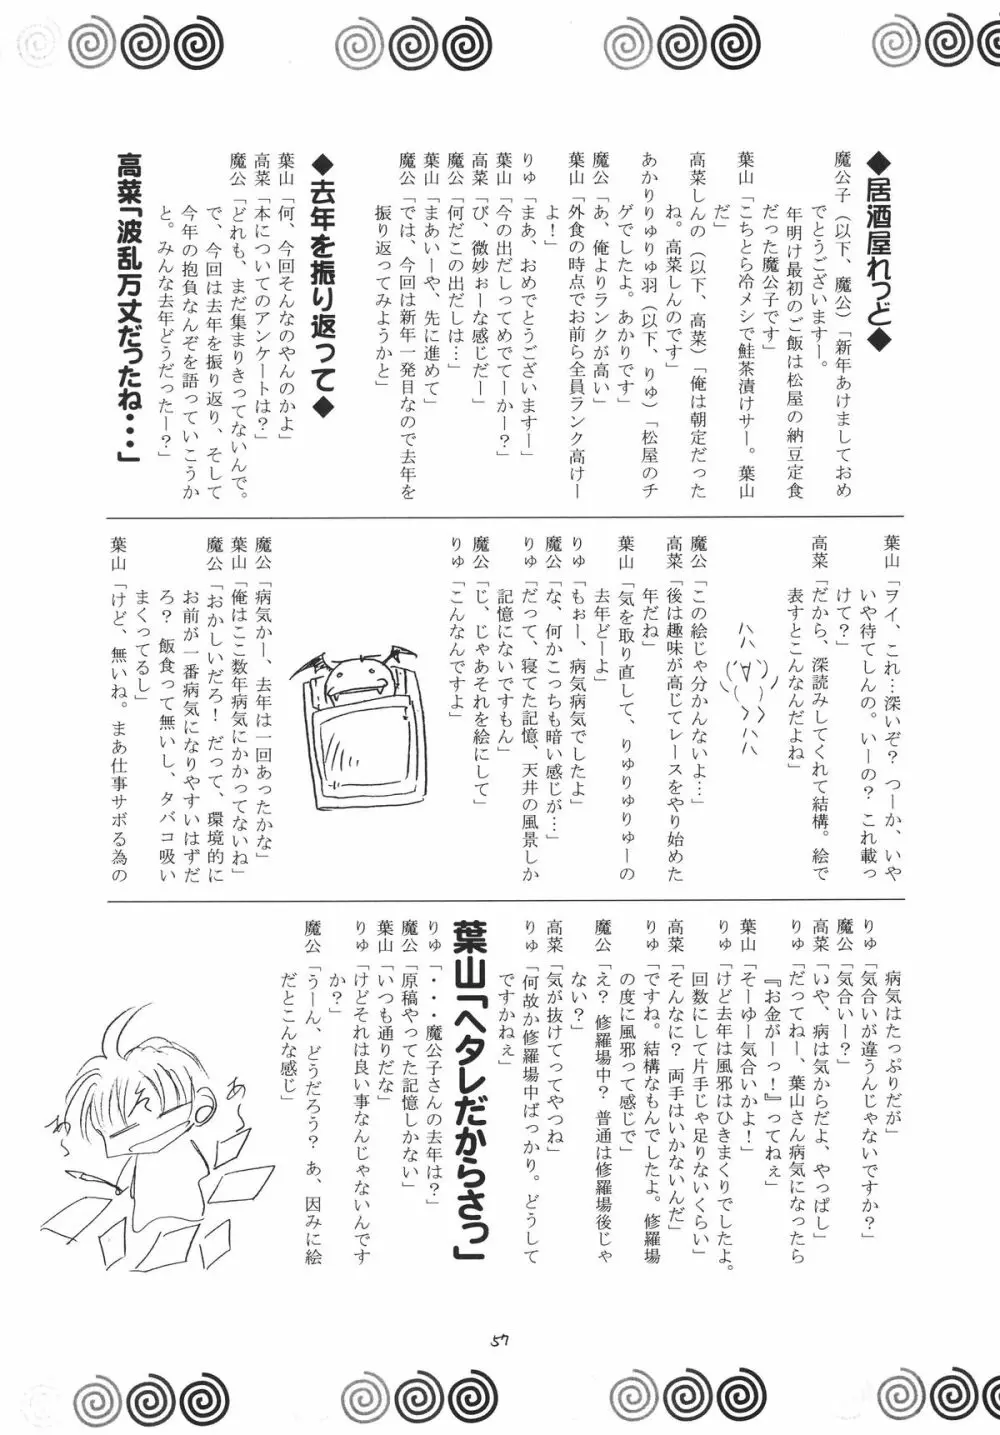 ◆居酒屋れっど◆
魔公子（以下、魔公）「新年あけましておめ
でとうございますー。
年明け最初のご飯は松屋の納豆定食
だった魔公子です」
葉山「こちとら冷メシで鮭茶漬けサー。葉山
だ」
高菜しんの（以下、高菜）「俺は朝定だった
ね。高菜しんのです」
あかりりゅりゅ羽（以下、りゅ）「松屋のチ
ゲでしたよ。あかりです」
魔公「あ、俺よりランクが高い」
葉山「外食の時点でお前ら全員ランク高けー
よ！」
りゅ「まあ、おめでとうございますー」
葉山「今の出だしってめでてーかー？」
高菜「び、微妙ぉーな感じだー」
魔公「何だこの出だしは…」
葉山「まあいーや、先に進めて」
魔公「では、今回は新年一発目なので去年を
振り返ってみようかと」
◆去年を振り返って◆
葉山「何、今回そんなのやんのかよ」
高菜「本についてのアンケートは？」
魔公「どれも、まだ集まりきってないんで。
で、今回は去年を振り返り、そして
今年の抱負なんぞを語っていこうか
と。みんな去年どうだったー？」
高菜「波乱万丈だったね・・・」
葉山「ヲイ、これ…深いぞ？　つーか、いや
いや待てしんの。いーの？　これ載っ
けて？」
高菜「だから、深読みしてくれて結構。絵で
表すとこんなんだよね」
魔公「この絵じゃ分かんないよ…」
高菜「後は趣味が高じてレースをやり始めた
年だね」
葉山「気を取り直して、りゅりゅりゅーの
去年どーよ」
りゅ「もぉー、病気病気でしたよ」
魔公「な、何かこっちも暗い感じが…」
りゅ「だって、寝てた記憶、天井の風景しか
記憶にないですもん」
魔公「じ、じゃあそれを絵にして」
りゅ「こんなんですよ」
魔公「病気かー、去年は一回あったかな」
葉山「俺はここ数年病気にかかってないね」
魔公「おかしいだろ！　だって、環境的に
お前が一番病気になりやすいはずだ
ろ？　飯食って無いし、タバコ吸い
まくってるし」
葉山「けど、無いね。まあ仕事サボる為の
病気はたっぷりだが」
りゅ「気合いが違うんじゃないですか？」
魔公「気合いー？」
高菜「いや、病は気からだよ、やっぱし」
りゅ「だってねー、葉山さん病気になったら
『お金がーっ！』ってねぇ」
葉山「そーゆー気合いかよ！」
りゅ「けど去年は風邪はひきまくりでしたよ。
回数にして片手じゃ足りないくらい」
高菜「そんなに？　両手はいかないんだ」
りゅ「ですね。結構なもんでしたよ。修羅場
の度に風邪って感じで」
魔公「え？　修羅場中？　普通は修羅場後じゃ
ない？」
高菜「気が抜けてってやつね」
りゅ「何故か修羅場中ばっかり。どうして
ですかねぇ」
葉山「ヘタレだからさっ」
りゅ「・・・魔公子さんの去年は？」
魔公「原稿やってた記憶しかない」
葉山「いつも通りだな」
りゅ「けどそれは良い事なんじゃないんです
か？」
魔公「うーん、どうだろう？　あ、因みに絵
だとこんな感じ」
あ〜
あ〜
57